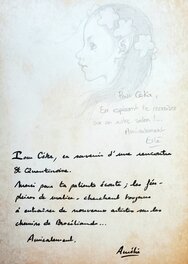 Pour Cékà,
En espérant te revoir
sur un autre salon !...
Amicalement
Pour Céka, en souvenir d'une rencontre
St Quentinoise.
Merci pour ta patiente écoute ; les
de malice, cherchent toujours
à entraîner de nouveaux artistes sur les
chemins de Brocéliande...
Amicalement,